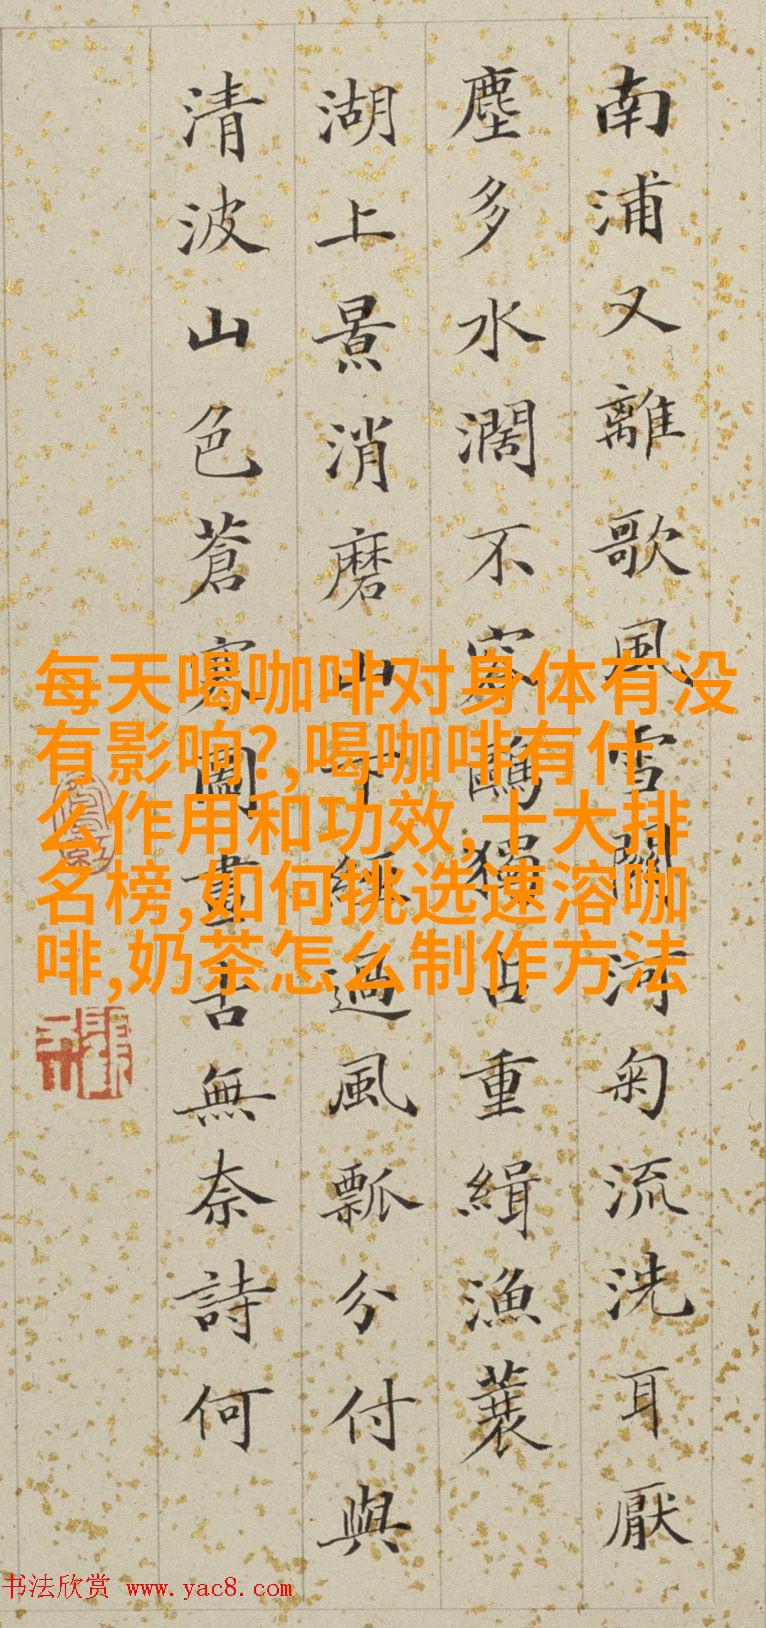 南浦又離歌風雪關河匊流洗耳厭
塵多水濶不容鷗獨占重緝漁蓑
湖上景消磨山下經過風瓢分付與
清波山色蒼寒圖畫無奈詩何
每天喝咖啡对身体有没
有影响?,喝咖啡有什
么作用和功效,十大排
名榜,如何挑选速溶咖
啡,奶茶怎么制作方法
书法欣赏 www.yac8.com